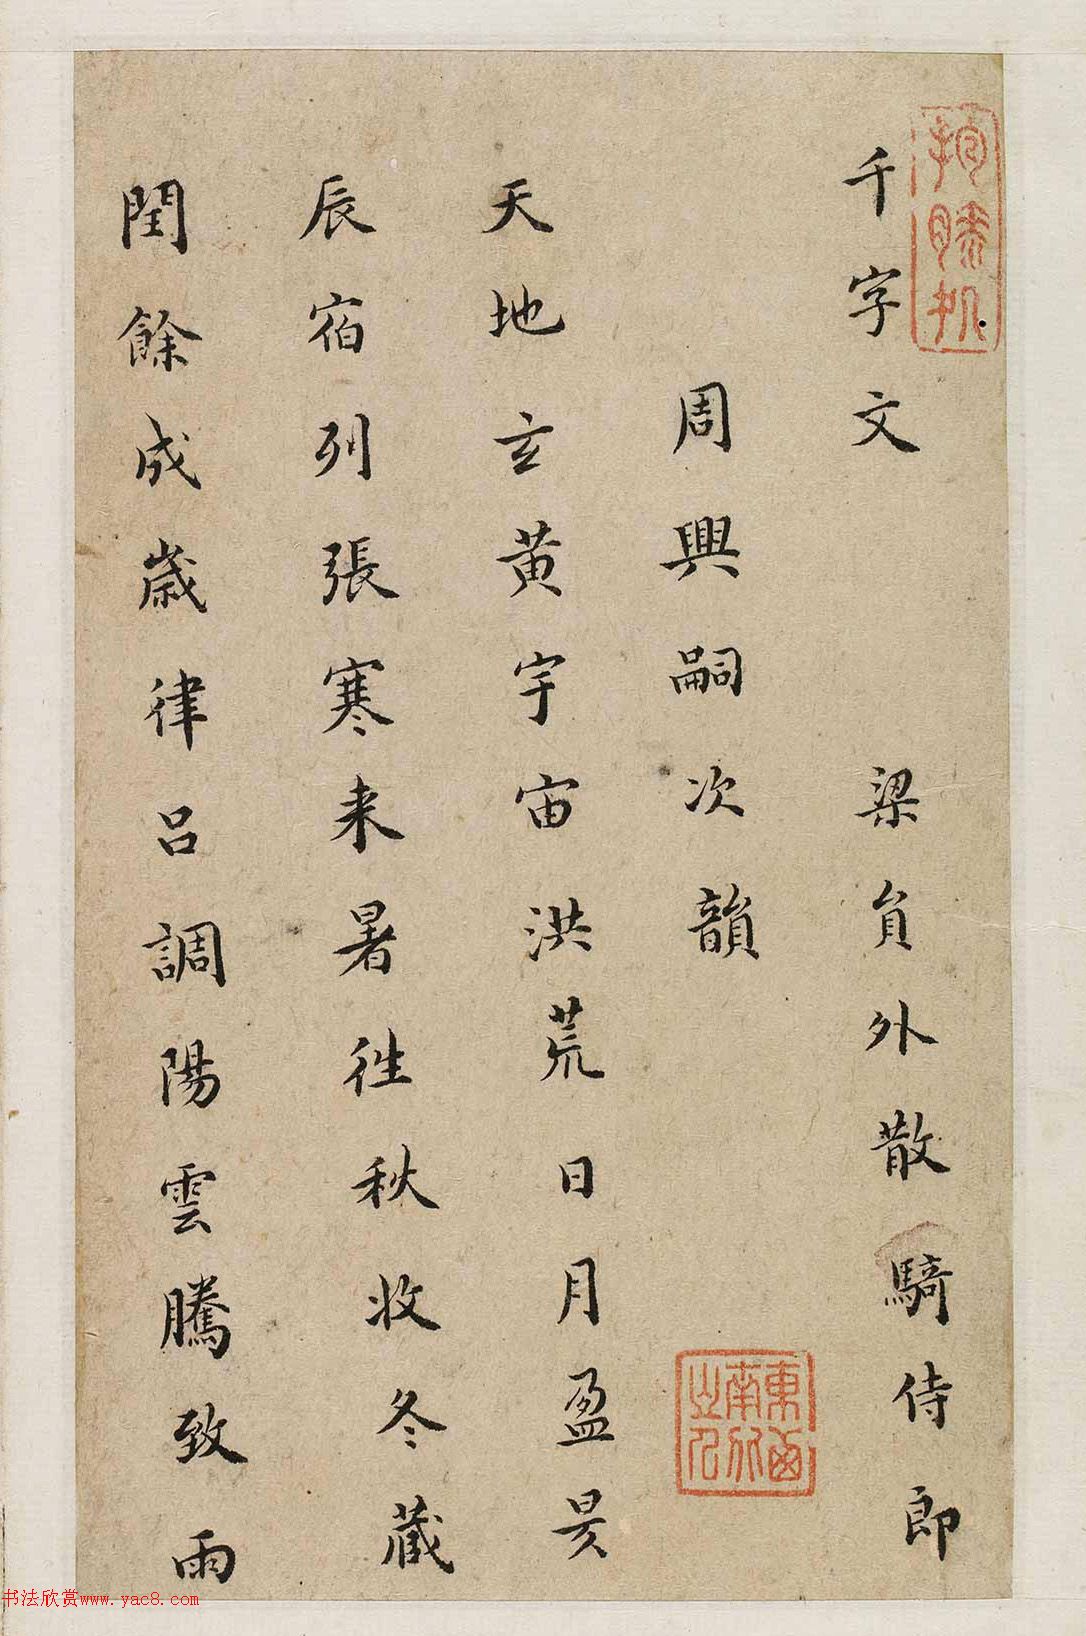 千字文 梁員外散騎侍郎
周興嗣次韻
天地玄黃宇宙洪荒日月盈昃
辰宿列張寒来暑往秋收冬藏
閏餘成歲律吕調陽雲騰致雨
東西南北之人
书法欣赏www.yac8.com